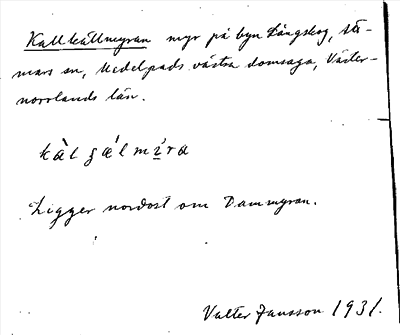 Kallkällmyran myr på byn Långskog, Stö-
mars sn, Medelpads västra domsaga, Väster-
norrlands län.
kàlʒǽlmýra
Ligger nordost om Dammyran.
Valter Jansson 1931.